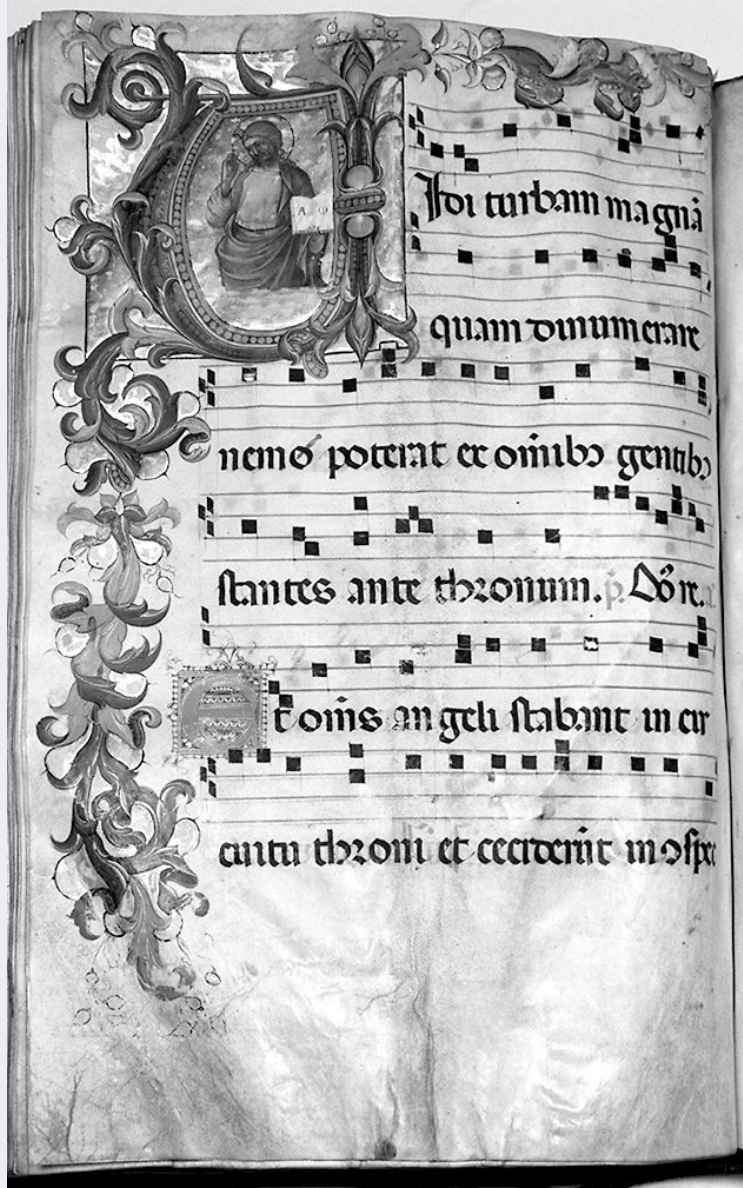 A ω
Vidi turbam magnā
quam dinumerare
nemo poterat ex om̄ibꝰ gentibꝰ
stantes ante thronum. p̄.
Et om̄s angeli stabant in cir
cuitu throni et ceciderūt in ꝯspec